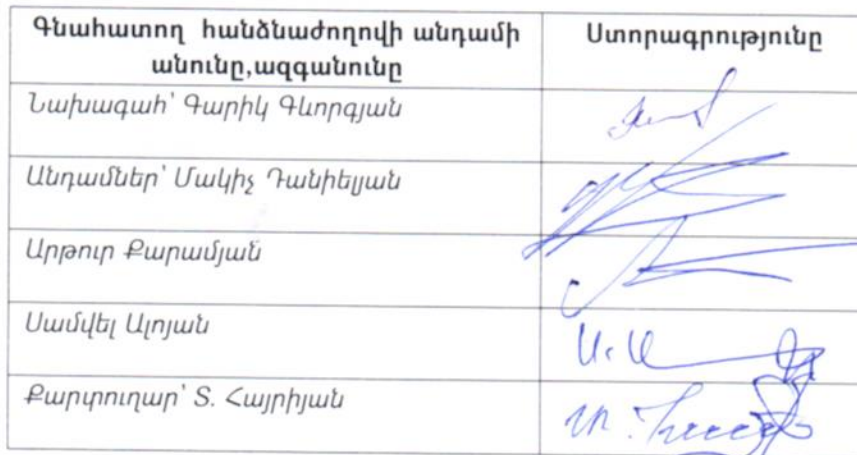 Գնահատող հանձնաժողովի անդամի
անունը,ազգանունը
Ստորագրությունը
Նախագահ՝ Գարիկ Գևորգյան
Անդամներ՝ Մակիչ Դանիելյան
Արթուր Քարամյան
Սամվել Ալոյան
Քարտուղար՝ Տ. Հայրիյան